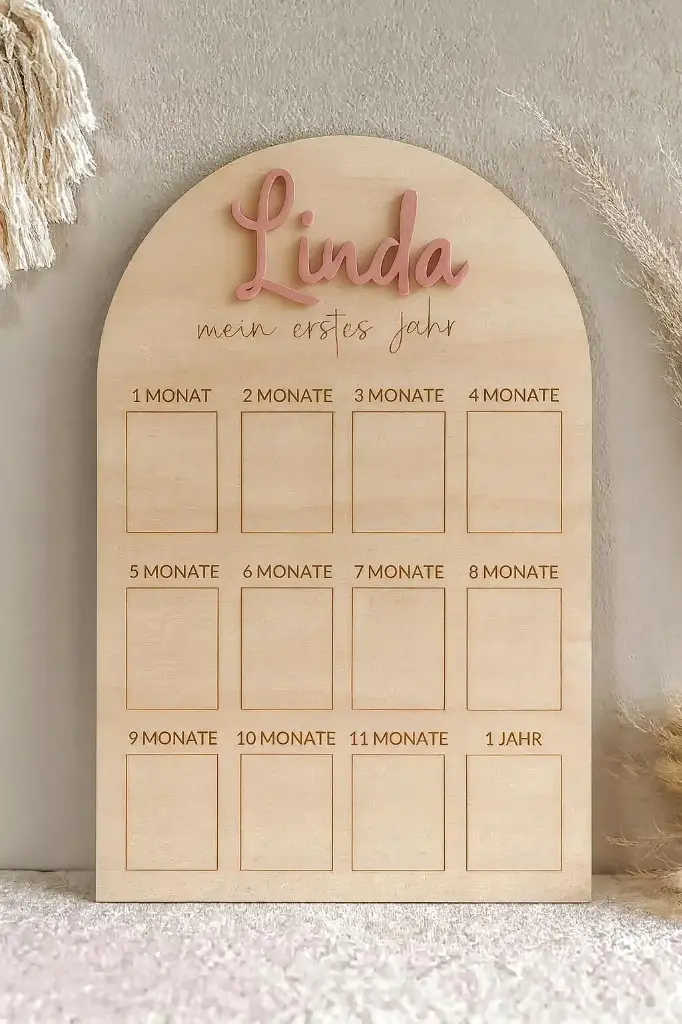 Linda
mein erstes Jahr
1 MONAT 2 MONATE 3 MONATE 4 MONATE
5 MONATE 6 MONATE 7 MONATE 8 MONATE
9 MONATE 10 MONATE 11 MONATE 1 JAHR